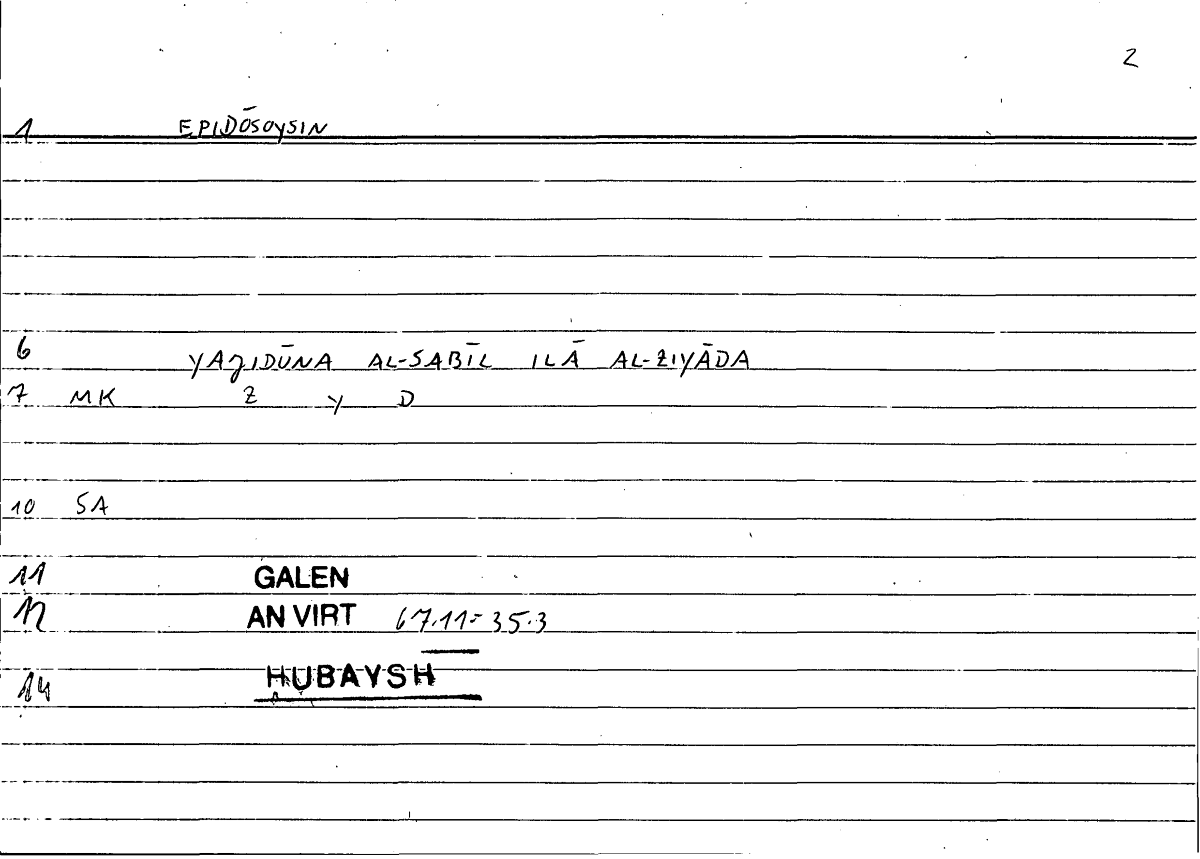 2
1 EPIDŌSOYSIN
6 YAJIDŪNA AL-SABĪL ILĀ AL-ZIYĀDA
7 MK Z Y D
10 SA
11 GALEN
12 AN VIRT 67.11=35.3
14 HUBAYSH